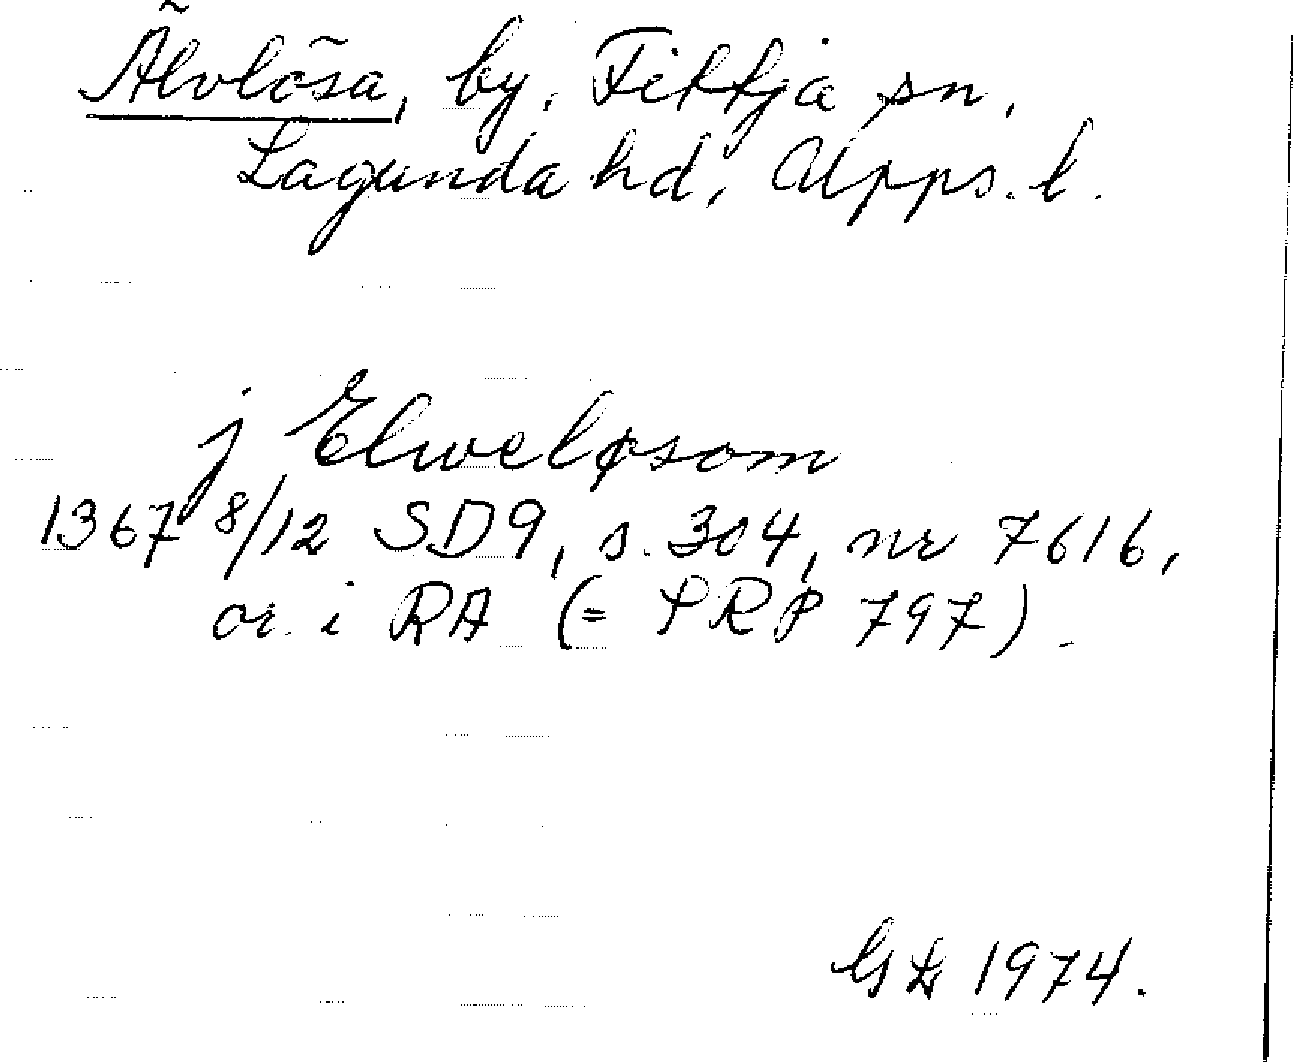 Älvlösa, by, Fittja sn,
Lagunda hd, Upps. l.
j Elweløsom
1367 8/12 SD9, s. 304, nr 7616,
or. i RA (= SRP 797).
1974.